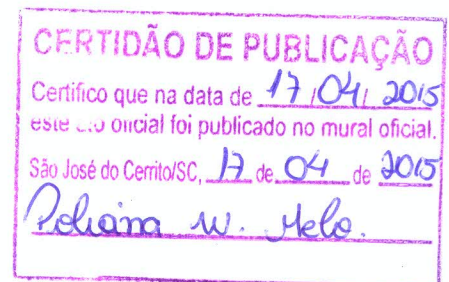 CERTIDÃO DE PUBLICAÇÃO
Certifico que na data de 17/04/2015
este oficial foi publicado no mural oficial.
São José do Cerrito/SC, 17 de 04 de 2015
Poliana W. Melo.